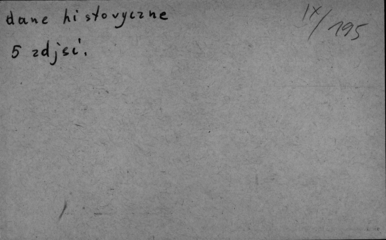 dane historyczne
IX/195
5 zdjęć.